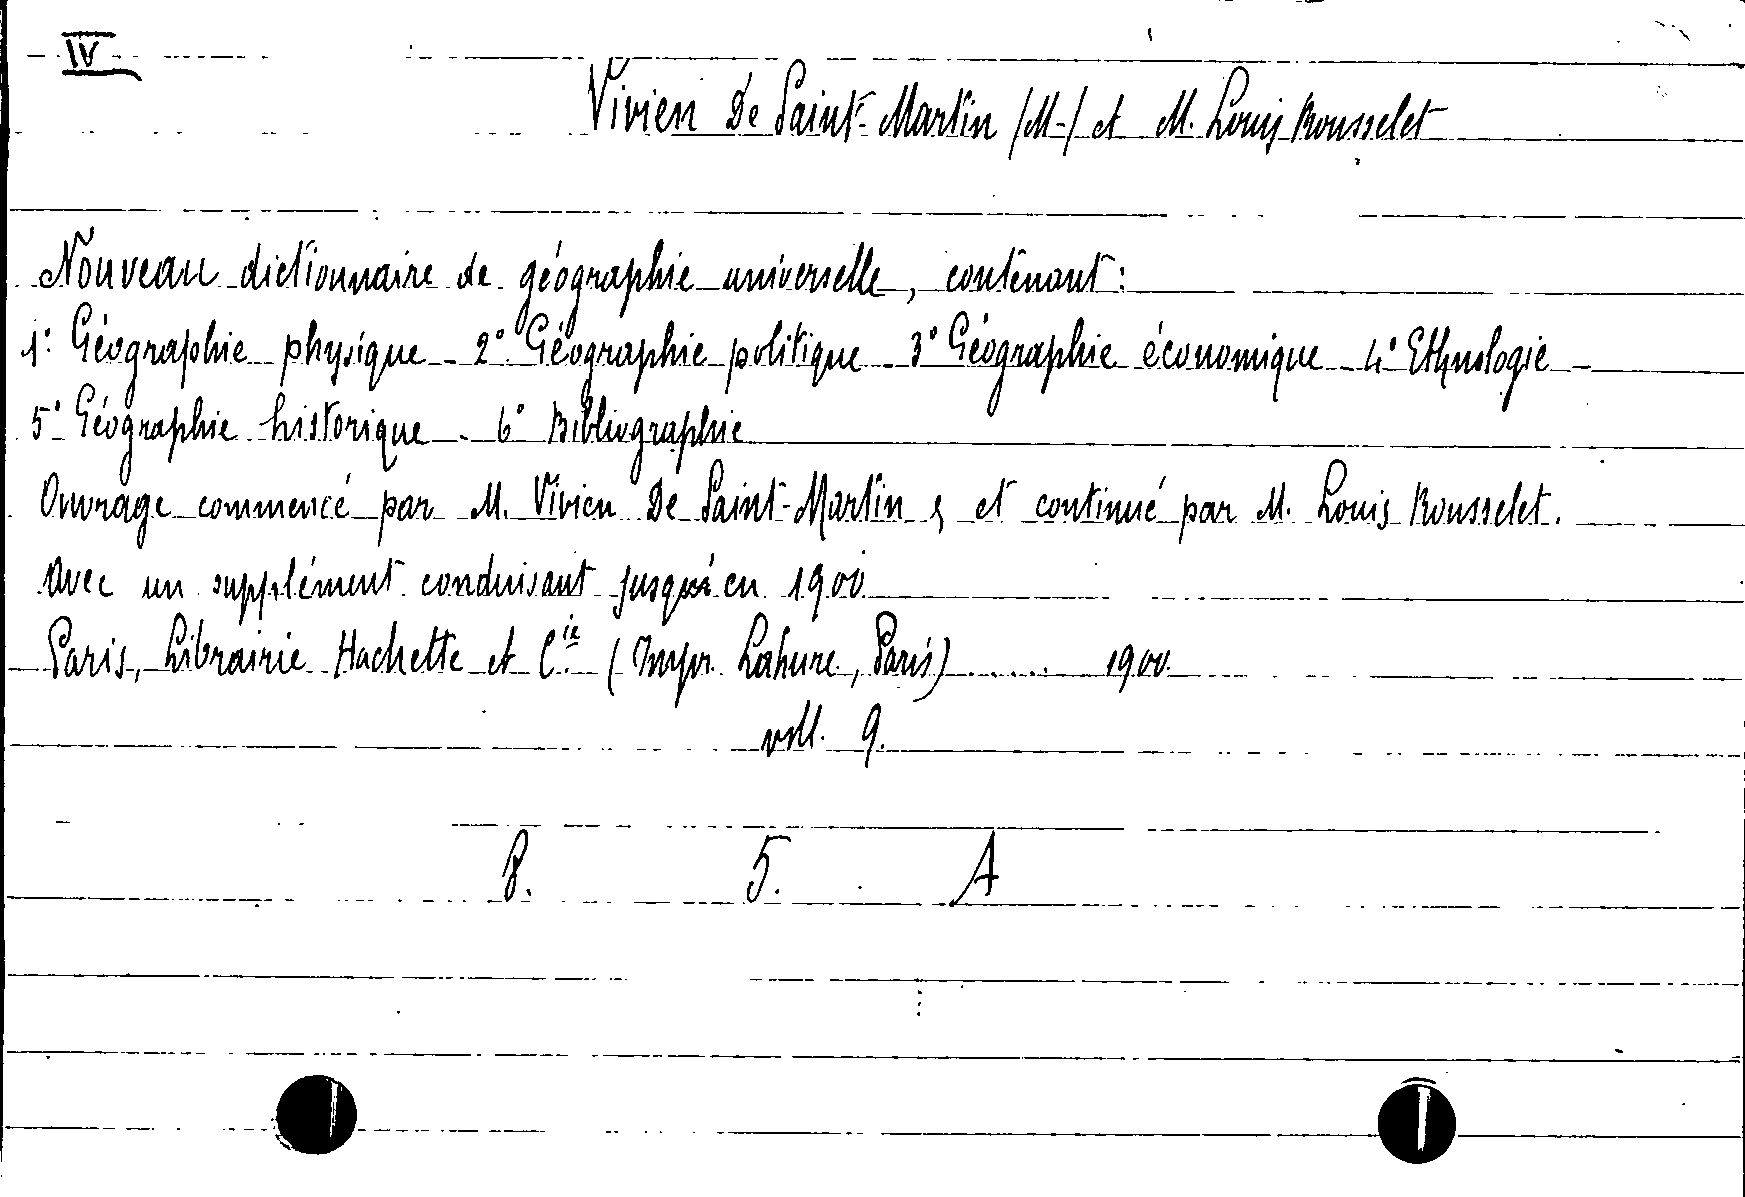 IV
Vivien De Saint-Martin (M-) et M. Louis Rousselet
Nouveau dictionnaire de géographie universelle, contenant:
1° Géographie physique - 2° Géographie politique - 3° Géographie économique - 4° Ethnologie -
5° Géographie historique - 6° Bibliographie
Ouvrage commencé par M. Vivien De Saint-Martin, et continué par M. Louis Rousselet.
Avec un supplément conduisant jusqu'en 1900
Paris, Librairie Hachette et Cie (Impr. Lahure, Paris) ...... 1900
voll. 9.
8. 5. A